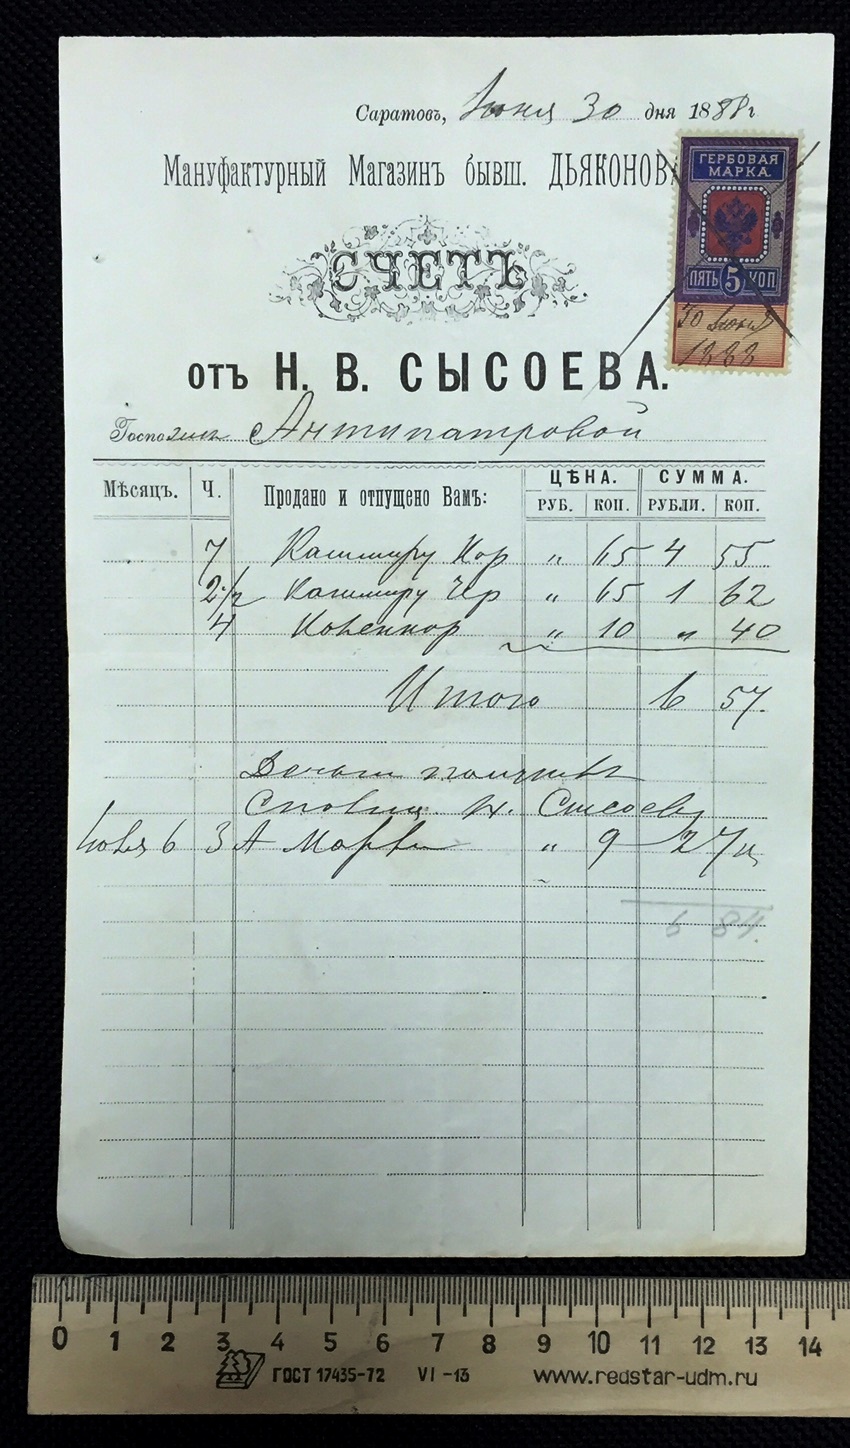 Саратовъ, Июня 30 дня 1888 г
Мануфактурный Магазинъ бывш. ДЬЯКОНОВА
ГЕРБОВАЯ
МАРКА.
ПЯТЬ 5 КОП
30 Июня
1888
СЧЕТЪ
отъ Н. В. СЫСОЕВА.
Госпожи Антипатровой
Мѣсяцъ. Ч. Продано и отпущено Вамъ: ЦѢНА. СУММА.
РУБ. КОП. РУБЛИ. КОП.
7 Кашмиру Кор " 65 4 55
2 1/2 Кашмиру Чер " 65 1 62
4 " 10 " 40
Итого 6 57.
Деньги
Н. Сысоевъ
6 3 А " 9 27
6 84.
0 1 2 3 4 5 6 7 8 9 10 11 12 13 14
ГОСТ 17435-72 VI-13 www.redstar-udm.ru